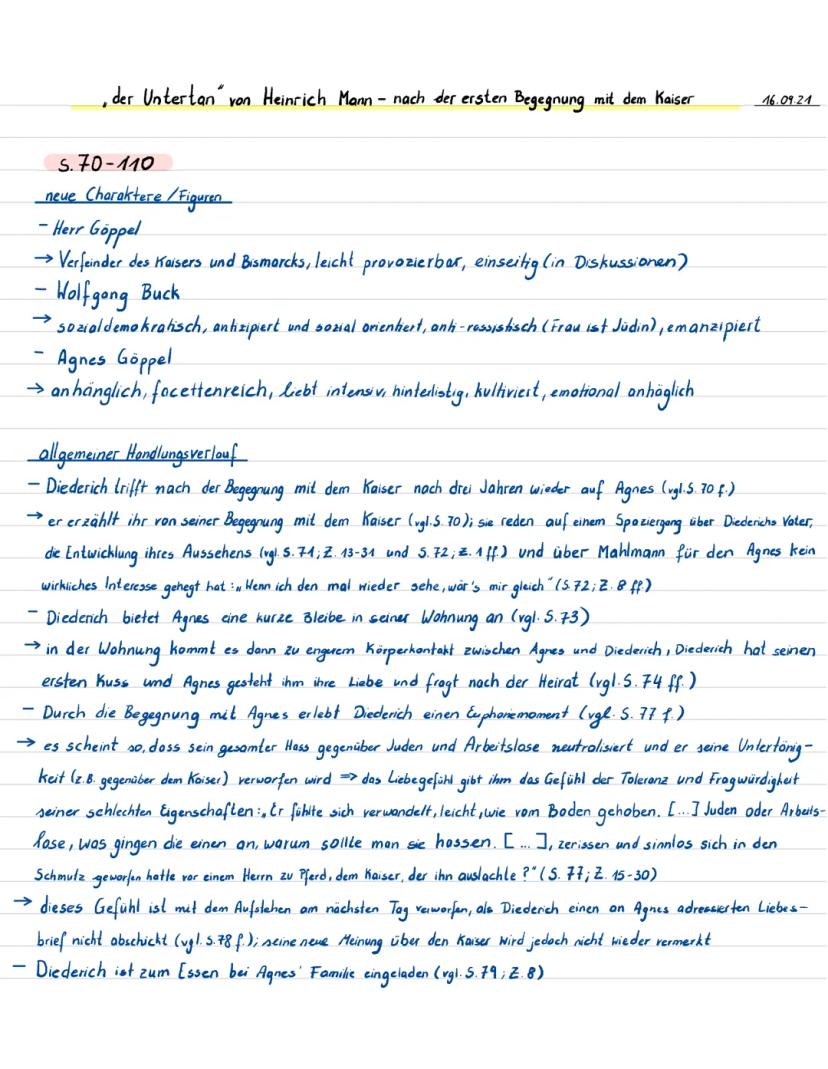 „der Untertan" von Heinrich Mann - nach der ersten Begegnung mit dem Kaiser 16.09.21
S. 70-110
neue Charaktere / Figuren
- Herr Göppel
→ Verfeinder des Kaisers und Bismarcks, leicht provozierbar, einseitig (in Diskussionen)
- Wolfgang Buck
→ sozialdemokratisch, antizipiert und sozial orientiert, anti-rassistisch (Frau ist Jüdin), emanzipiert
- Agnes Göppel
→ anhänglich, facettenreich, liebt intensiv, hinterlistig, kultiviert, emotional anhäglich
allgemeiner Handlungsverlauf
- Diederich trifft nach der Begegnung mit dem Kaiser nach drei Jahren wieder auf Agnes (vgl. S. 70 f.)
→ er erzählt ihr von seiner Begegnung mit dem Kaiser (vgl. S. 70); sie reden auf einem Spaziergang über Diederichs Vater,
die Entwicklung ihres Aussehens (vgl. S. 71; Z. 13-31 und S. 72; Z. 1 ff.) und über Mahlmann für den Agnes kein
wirkliches Interesse gehegt hat: „Wenn ich den mal wieder sehe, wär's mir gleich" (S. 72; Z. 8 ff)
- Diederich bietet Agnes eine kurze Bleibe in seiner Wohnung an (vgl. S. 73)
→ in der Wohnung kommt es dann zu engurem Körperkontakt zwischen Agnes und Diederich, Diederich hat seinen
ersten Kuss und Agnes gesteht ihm ihre Liebe und fragt nach der Heirat (vgl. S. 74 ff.)
- Durch die Begegnung mit Agnes erlebt Diederich einen Euphoriemoment (vgl. S. 77 f.)
→ es scheint so, dass sein gesamter Hass gegenüber Juden und Arbeitslose neutralisiert und er seine Untertänig-
keit (z.B. gegenüber dem Kaiser) verworfen wird => das Liebegefühl gibt ihm das Gefühl der Toleranz und Fragwürdigkeit
seiner schlechten Eigenschaften: „Er fühlte sich verwandelt, leicht, wie vom Boden gehoben. [...] Juden oder Arbeits-
lose, was gingen die einen an, warum sollte man sie hassen. [...], zerissen und sinnlos sich in den
Schmutz geworfen hatte vor einem Herrn zu Pferd, dem Kaiser, der ihn auslachte?" (S. 77; Z. 15-30)
→ dieses Gefühl ist mit dem Aufstehen am nächsten Tag verworfen, als Diederich einen an Agnes adressierten Liebes-
brief nicht abschickt (vgl. S. 78 f.); seine neue Meinung über den Kaiser wird jedoch nicht wieder vermerkt
- Diederich ist zum Essen bei Agnes' Familie eingeladen (vgl. S. 79; Z. 8)